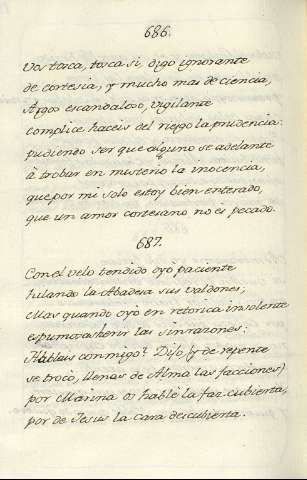 686.
Vos tosca, tosca si, digo ignorante
de cortesia, y mucho mas de ciencia,
Argos escandaloso, vigilante
complice haceis del riesgo la prudencia:
pudiendo ser que alguno se adelante
à trobar en misterio la inocencia,
que por mi solo estoy bien enterado,
que un amor cortesano no es pecado.
687.
Con el velo tendido oyó paciente
hilando la Abadesa sus valdones;
Mas quando oyó en retorica insolente
espumosas herir las sinrazones:
Hablais conmigo? Dijo, (y de repente
se trocó, llenas de Alma las facciones)
por Marina os hablé la faz cubierta,
por de Jesus la cara descubierta.